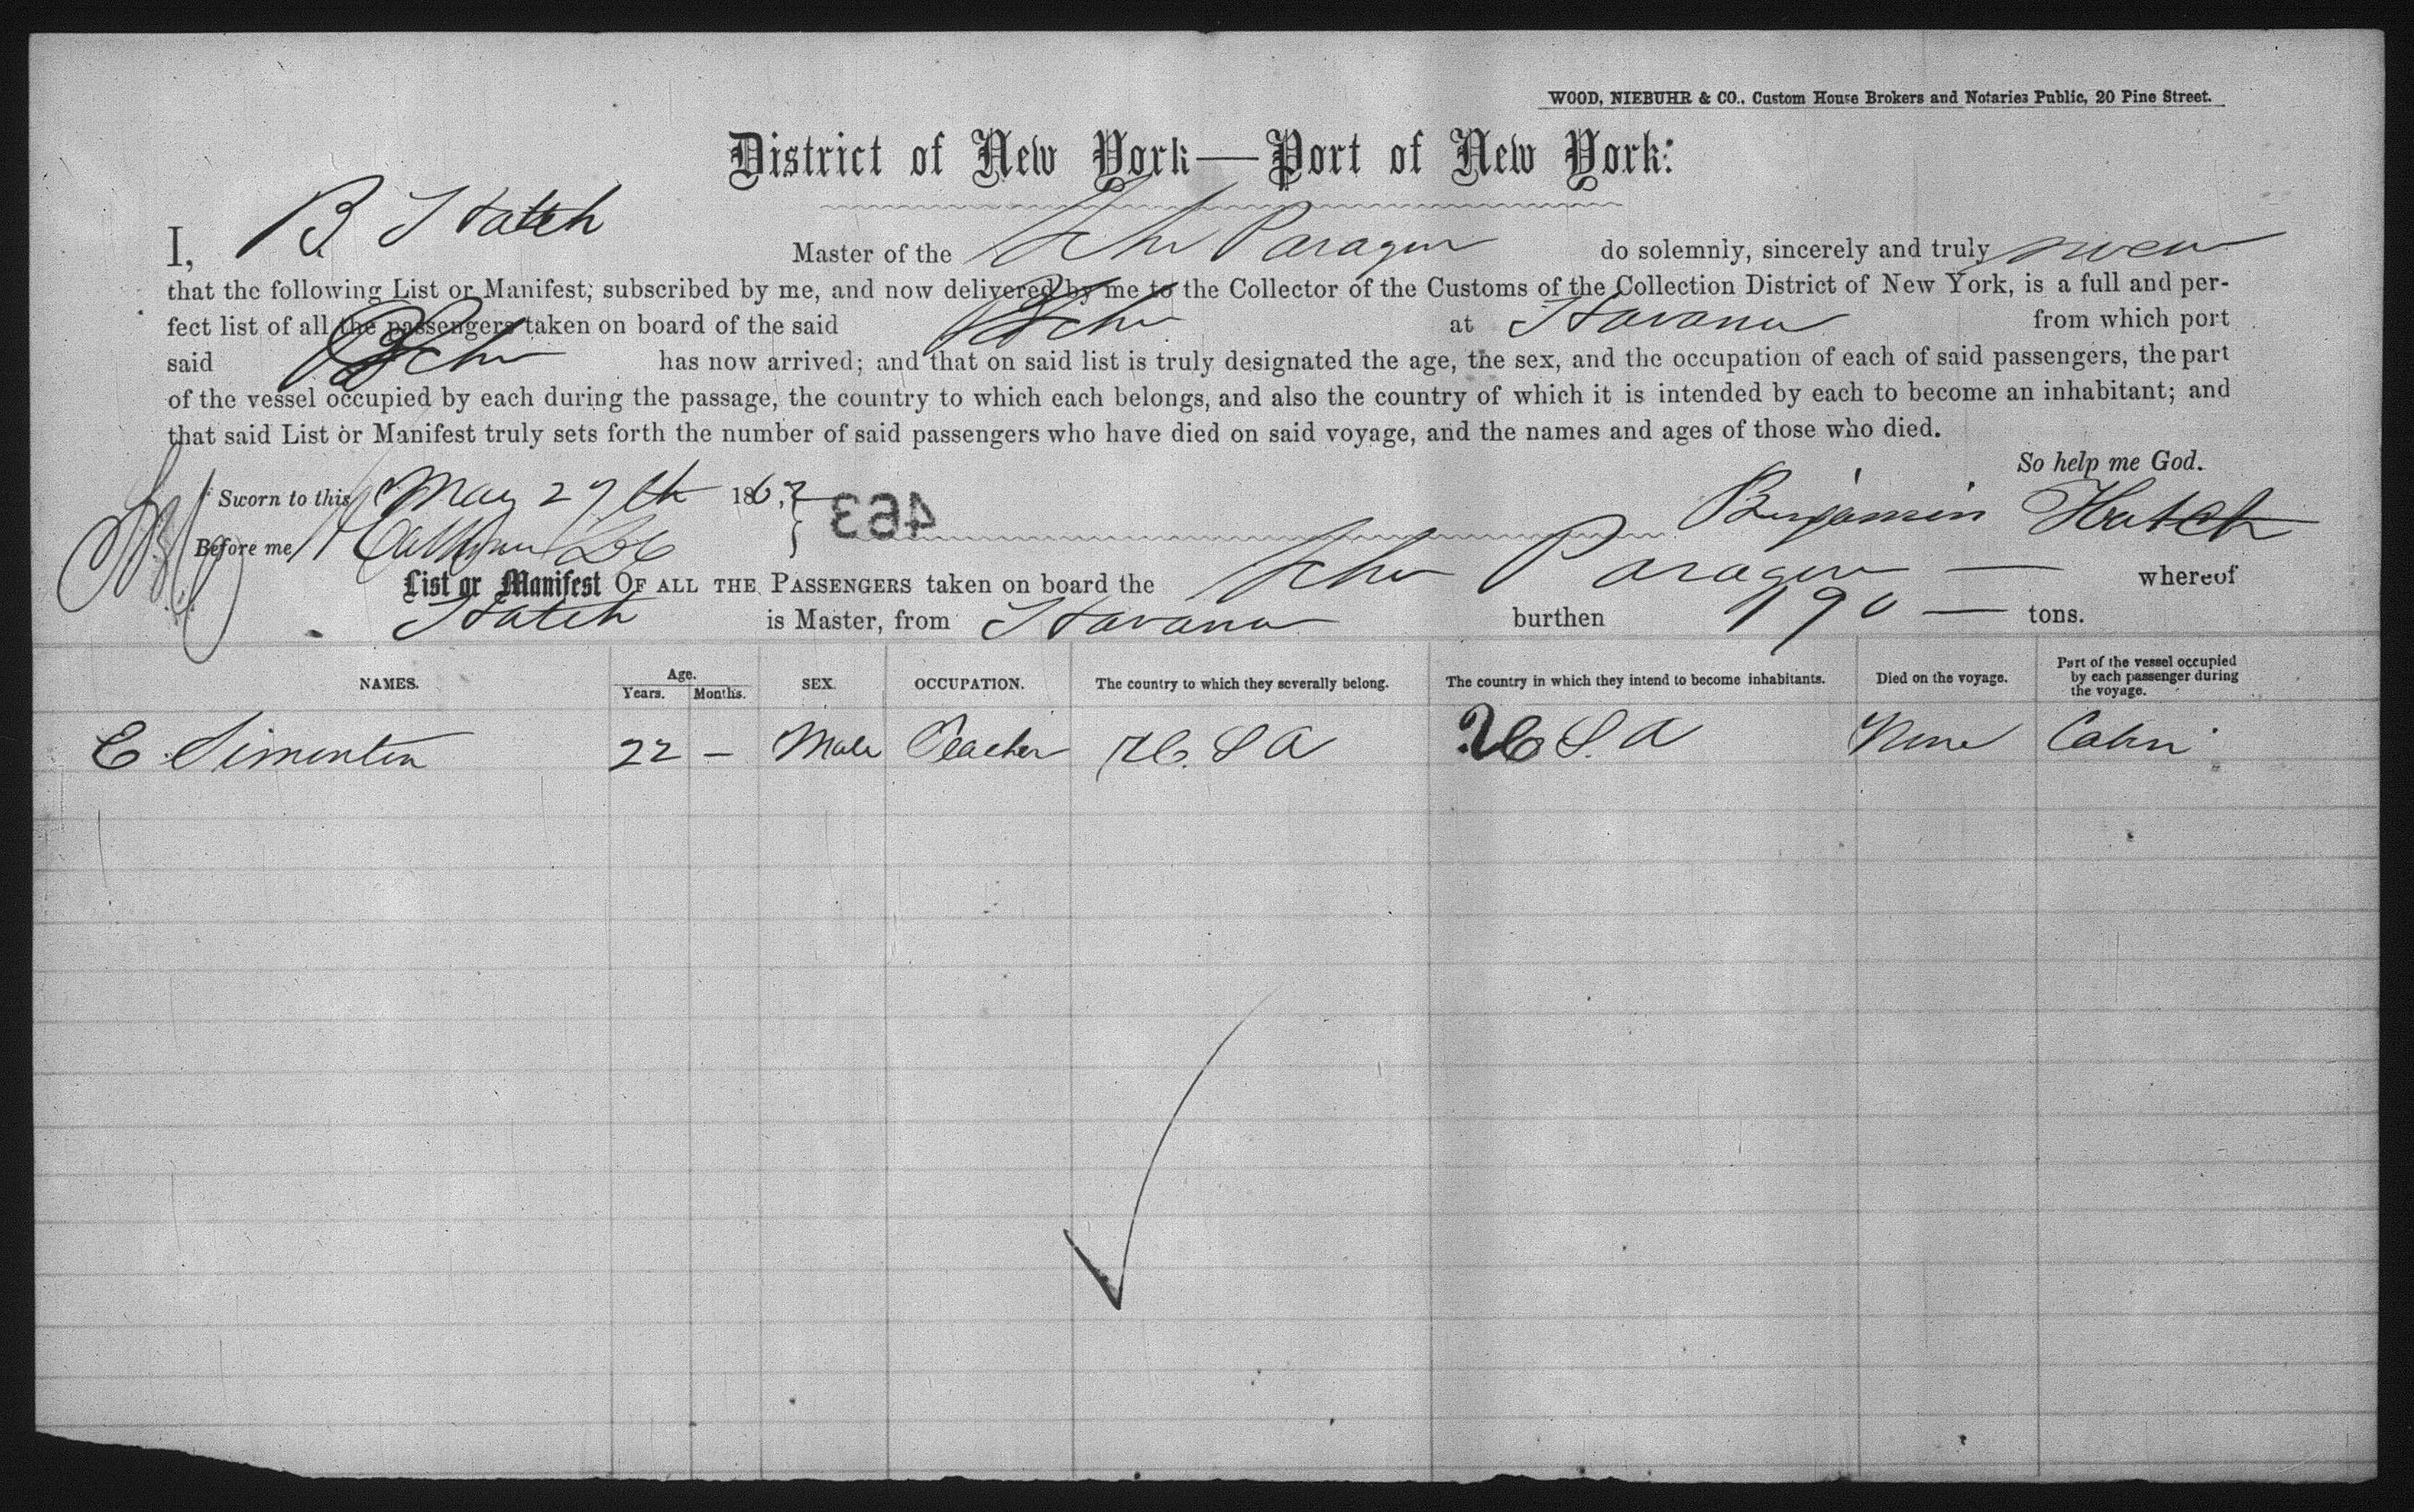 WOOD, NIEBUHR & CO., Custom House Brokers and Notaries Public, 20 Pine Street.
District of New York—Port of New York:
I, B Hatch Master of the Schr Paragon do solemnly, sincerely and truly swear
that the following List or Manifest; subscribed by me, and now delivered by me to the Collector of the Customs of the Collection District of New York, is a full and per-
fect list of all the passengers taken on board of the said Schr at Havana from which port
said Schr has now arrived; and that on said list is truly designated the age, the sex, and the occupation of each of said passengers, the part
of the vessel occupied by each during the passage, the country to which each belongs, and also the country of which it is intended by each to become an inhabitant; and
that said List or Manifest truly sets forth the number of said passengers who have died on said voyage, and the names and ages of those who died.
So help me God.
Sworn to this May 27th 186 463 Benjamin Hatch
Before me
List or Manifest OF ALL THE PASSENGERS taken on board the Schr Paragon — whereof
Hatch is Master, from Havana burthen 190 — tons.
NAMES. Age. Years. Months. SEX. OCCUPATION. The country to which they severally belong. The country in which they intend to become inhabitants. Died on the voyage. Part of the vessel occupied by each passenger during the voyage.
E Simonton 22 — Male Teacher U. S A U S. A None Cabin